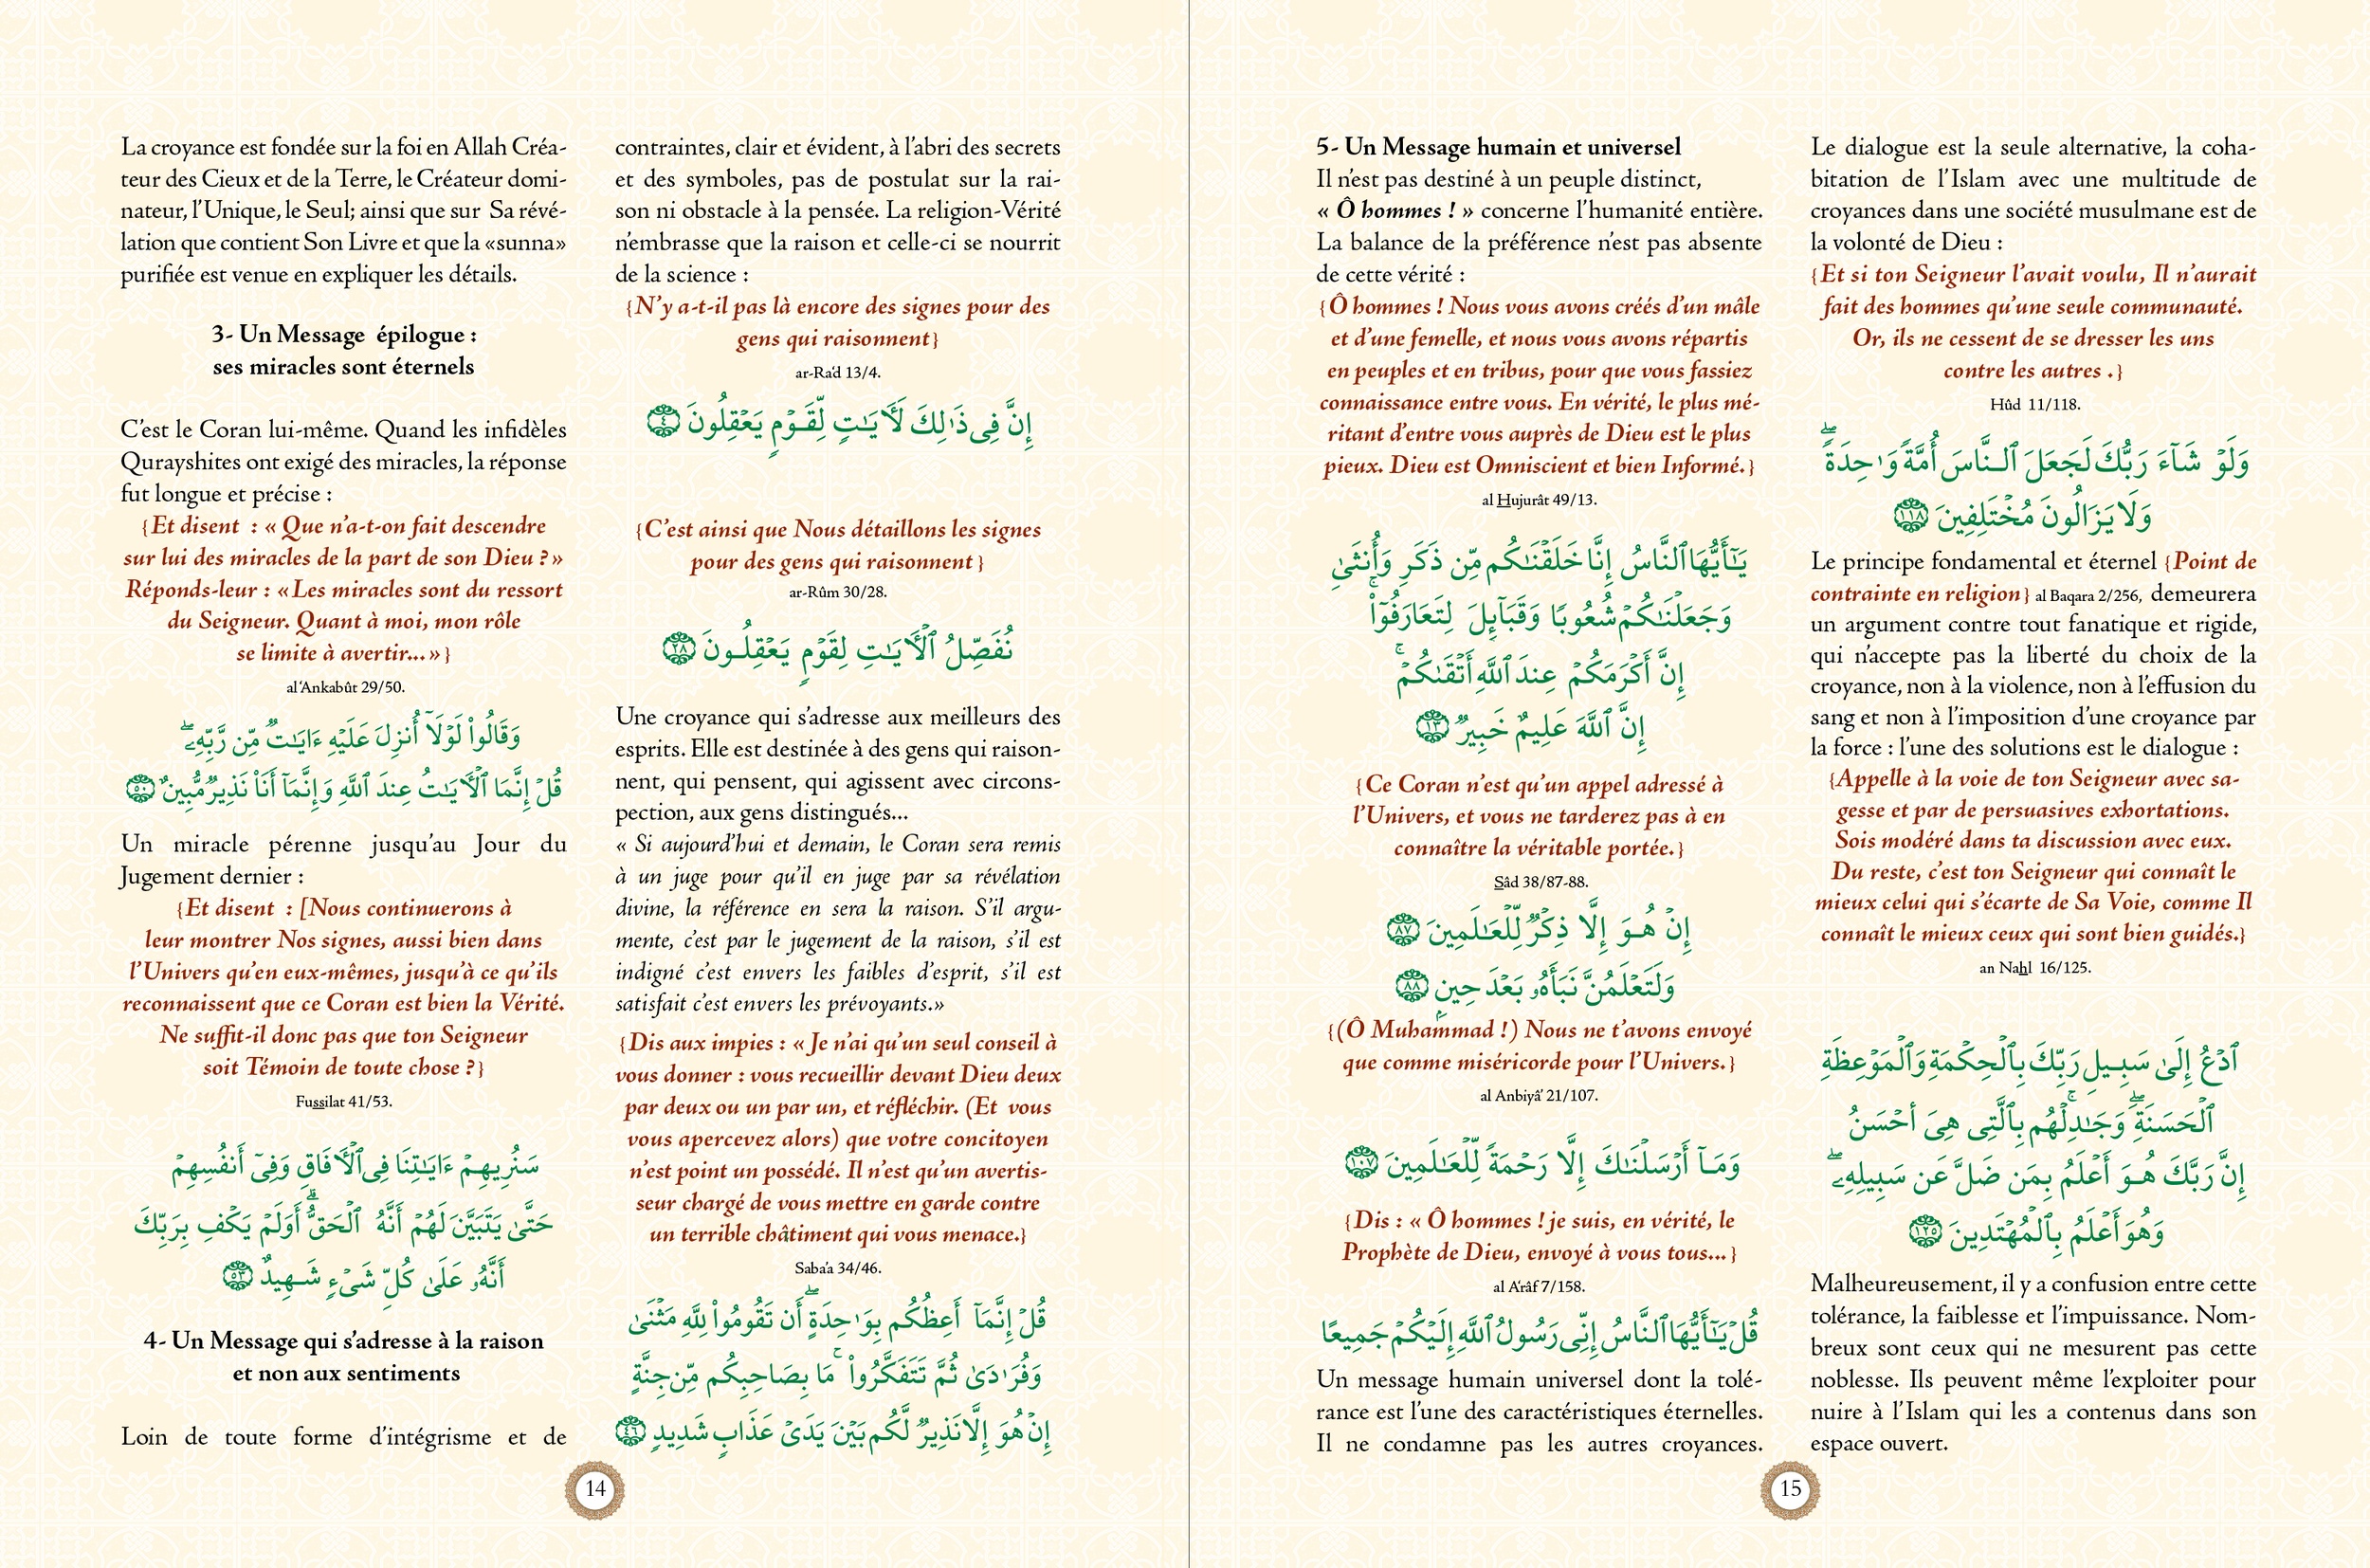 La croyance est fondée sur la foi en Allah Créa-
teur des Cieux et de la Terre, le Créateur domi-
nateur, l'Unique, le Seul; ainsi que sur Sa révé-
lation que contient Son Livre et que la «sunna»
purifiée est venue en expliquer les détails.
3- Un Message épilogue :
ses miracles sont éternels
C'est le Coran lui-même. Quand les infidèles
Qurayshites ont exigé des miracles, la réponse
fut longue et précise :
{Et disent : « Que n'a-t-on fait descendre
sur lui des miracles de la part de son Dieu ?»
Réponds-leur : «Les miracles sont du ressort
du Seigneur. Quant à moi, mon rôle
se limite à avertir...»}
al'Ankabût 29/50.
وَقَالُوا۟ لَوْلَآ أُنزِلَ عَلَيْهِ ءَايَـٰتٌ مِّن رَّبِّهِۦ ۖ
قُلْ إِنَّمَا ٱلْأَيَـٰتُ عِندَ ٱللَّهِ وَإِنَّمَآ أَنَا۠ نَذِيرٌ مُّبِينٌ ٥٠
Un miracle pérenne jusqu'au Jour du
Jugement dernier :
{Et disent : [Nous continuerons à
leur montrer Nos signes, aussi bien dans
l'Univers qu'en eux-mêmes, jusqu'à ce qu'ils
reconnaissent que ce Coran est bien la Vérité.
Ne suffit-il donc pas que ton Seigneur
soit Témoin de toute chose ?}
Fussilat 41/53.
سَنُرِيهِمْ ءَايَـٰتِنَا فِى ٱلْأَفَاقِ وَفِىٓ أَنفُسِهِمْ
حَتَّىٰ يَتَبَيَّنَ لَهُمْ أَنَّهُ ٱلْحَقُّ ۗ أَوَلَمْ يَكْفِ بِرَبِّكَ
أَنَّهُۥ عَلَىٰ كُلِّ شَىْءٍ شَهِيدٌ ٥٣
4- Un Message qui s'adresse à la raison
et non aux sentiments
Loin de toute forme d'intégrisme et de
contraintes, clair et évident, à l'abri des secrets
et des symboles, pas de postulat sur la rai-
son ni obstacle à la pensée. La religion-Vérité
n'embrasse que la raison et celle-ci se nourrit
de la science :
{N'y a-t-il pas là encore des signes pour des
gens qui raisonnent}
ar-Ra'd 13/4.
إِنَّ فِى ذَٰلِكَ لَأَيَـٰتٍ لِّقَوْمٍ يَعْقِلُونَ ٤
{C'est ainsi que Nous détaillons les signes
pour des gens qui raisonnent }
ar-Rûm 30/28.
نُفَصِّلُ ٱلْأَيَـٰتِ لِقَوْمٍ يَعْقِلُونَ ٢٨
Une croyance qui s'adresse aux meilleurs des
esprits. Elle est destinée à des gens qui raison-
nent, qui pensent, qui agissent avec circons-
pection, aux gens distingués...
« Si aujourd'hui et demain, le Coran sera remis
à un juge pour qu'il en juge par sa révélation
divine, la référence en sera la raison. S'il argu-
mente, c'est par le jugement de la raison, s'il est
indigné c'est envers les faibles d'esprit, s'il est
satisfait c'est envers les prévoyants.»
{Dis aux impies : « Je n'ai qu'un seul conseil à
vous donner : vous recueillir devant Dieu deux
par deux ou un par un, et réfléchir. (Et vous
vous apercevez alors) que votre concitoyen
n'est point un possédé. Il n'est qu'un avertis-
seur chargé de vous mettre en garde contre
un terrible châtiment qui vous menace.}
Saba'a 34/46.
قُلْ إِنَّمَآ أَعِظُكُم بِوَٰحِدَةٍ ۖ أَن تَقُومُوا۟ لِلَّهِ مَثْنَىٰ
وَفُرَٰدَىٰ ثُمَّ تَتَفَكَّرُوا۟ ۚ مَا بِصَاحِبِكُم مِّن جِنَّةٍ
إِنْ هُوَ إِلَّا نَذِيرٌ لَّكُم بَيْنَ يَدَىْ عَذَابٍ شَدِيدٍ ٤٦
14
5- Un Message humain et universel
Il n'est pas destiné à un peuple distinct,
« Ô hommes ! » concerne l'humanité entière.
La balance de la préférence n'est pas absente
de cette vérité :
{Ô hommes ! Nous vous avons créés d'un mâle
et d'une femelle, et nous vous avons répartis
en peuples et en tribus, pour que vous fassiez
connaissance entre vous. En vérité, le plus mé-
ritant d'entre vous auprès de Dieu est le plus
pieux. Dieu est Omniscient et bien Informé.}
al Hujurât 49/13.
يَـٰٓأَيُّهَا ٱلنَّاسُ إِنَّا خَلَقْنَـٰكُم مِّن ذَكَرٍ وَأُنثَىٰ
وَجَعَلْنَـٰكُمْ شُعُوبًا وَقَبَآئِلَ لِتَعَارَفُوٓا۟ ۚ
إِنَّ أَكْرَمَكُمْ عِندَ ٱللَّهِ أَتْقَىٰكُمْ ۚ
إِنَّ ٱللَّهَ عَلِيمٌ خَبِيرٌ ١٣
{Ce Coran n'est qu'un appel adressé à
l'Univers, et vous ne tarderez pas à en
connaître la véritable portée.}
Sâd 38/87-88.
إِنْ هُوَ إِلَّا ذِكْرٌ لِّلْعَـٰلَمِينَ ٨٧
وَلَتَعْلَمُنَّ نَبَأَهُۥ بَعْدَ حِينٍ ٨٨
{(Ô Muhammad !) Nous ne t'avons envoyé
que comme miséricorde pour l'Univers.}
al Anbiyâ' 21/107.
وَمَآ أَرْسَلْنَـٰكَ إِلَّا رَحْمَةً لِّلْعَـٰلَمِينَ ١٠٧
{Dis : « Ô hommes ! je suis, en vérité, le
Prophète de Dieu, envoyé à vous tous...}
al A'râf 7/158.
قُلْ يَـٰٓأَيُّهَا ٱلنَّاسُ إِنِّى رَسُولُ ٱللَّهِ إِلَيْكُمْ جَمِيعًا
Un message humain universel dont la tolé-
rance est l'une des caractéristiques éternelles.
Il ne condamne pas les autres croyances.
Le dialogue est la seule alternative, la coha-
bitation de l'Islam avec une multitude de
croyances dans une société musulmane est de
la volonté de Dieu :
{Et si ton Seigneur l'avait voulu, Il n'aurait
fait des hommes qu'une seule communauté.
Or, ils ne cessent de se dresser les uns
contre les autres .}
Hûd 11/118.
وَلَوْ شَآءَ رَبُّكَ لَجَعَلَ ٱلنَّاسَ أُمَّةً وَٰحِدَةً ۖ
وَلَا يَزَالُونَ مُخْتَلِفِينَ ١١٨
Le principe fondamental et éternel {Point de
contrainte en religion} al Baqara 2/256, demeurera
un argument contre tout fanatique et rigide,
qui n'accepte pas la liberté du choix de la
croyance, non à la violence, non à l'effusion du
sang et non à l'imposition d'une croyance par
la force : l'une des solutions est le dialogue :
{Appelle à la voie de ton Seigneur avec sa-
gesse et par de persuasives exhortations.
Sois modéré dans ta discussion avec eux.
Du reste, c'est ton Seigneur qui connaît le
mieux celui qui s'écarte de Sa Voie, comme Il
connaît le mieux ceux qui sont bien guidés.}
an Nahl 16/125.
ٱدْعُ إِلَىٰ سَبِيلِ رَبِّكَ بِٱلْحِكْمَةِ وَٱلْمَوْعِظَةِ
ٱلْحَسَنَةِ ۖ وَجَـٰدِلْهُم بِٱلَّتِى هِىَ أَحْسَنُ ۚ
إِنَّ رَبَّكَ هُوَ أَعْلَمُ بِمَن ضَلَّ عَن سَبِيلِهِۦ ۖ
وَهُوَ أَعْلَمُ بِٱلْمُهْتَدِينَ ١٢٥
Malheureusement, il y a confusion entre cette
tolérance, la faiblesse et l'impuissance. Nom-
breux sont ceux qui ne mesurent pas cette
noblesse. Ils peuvent même l'exploiter pour
nuire à l'Islam qui les a contenus dans son
espace ouvert.
15